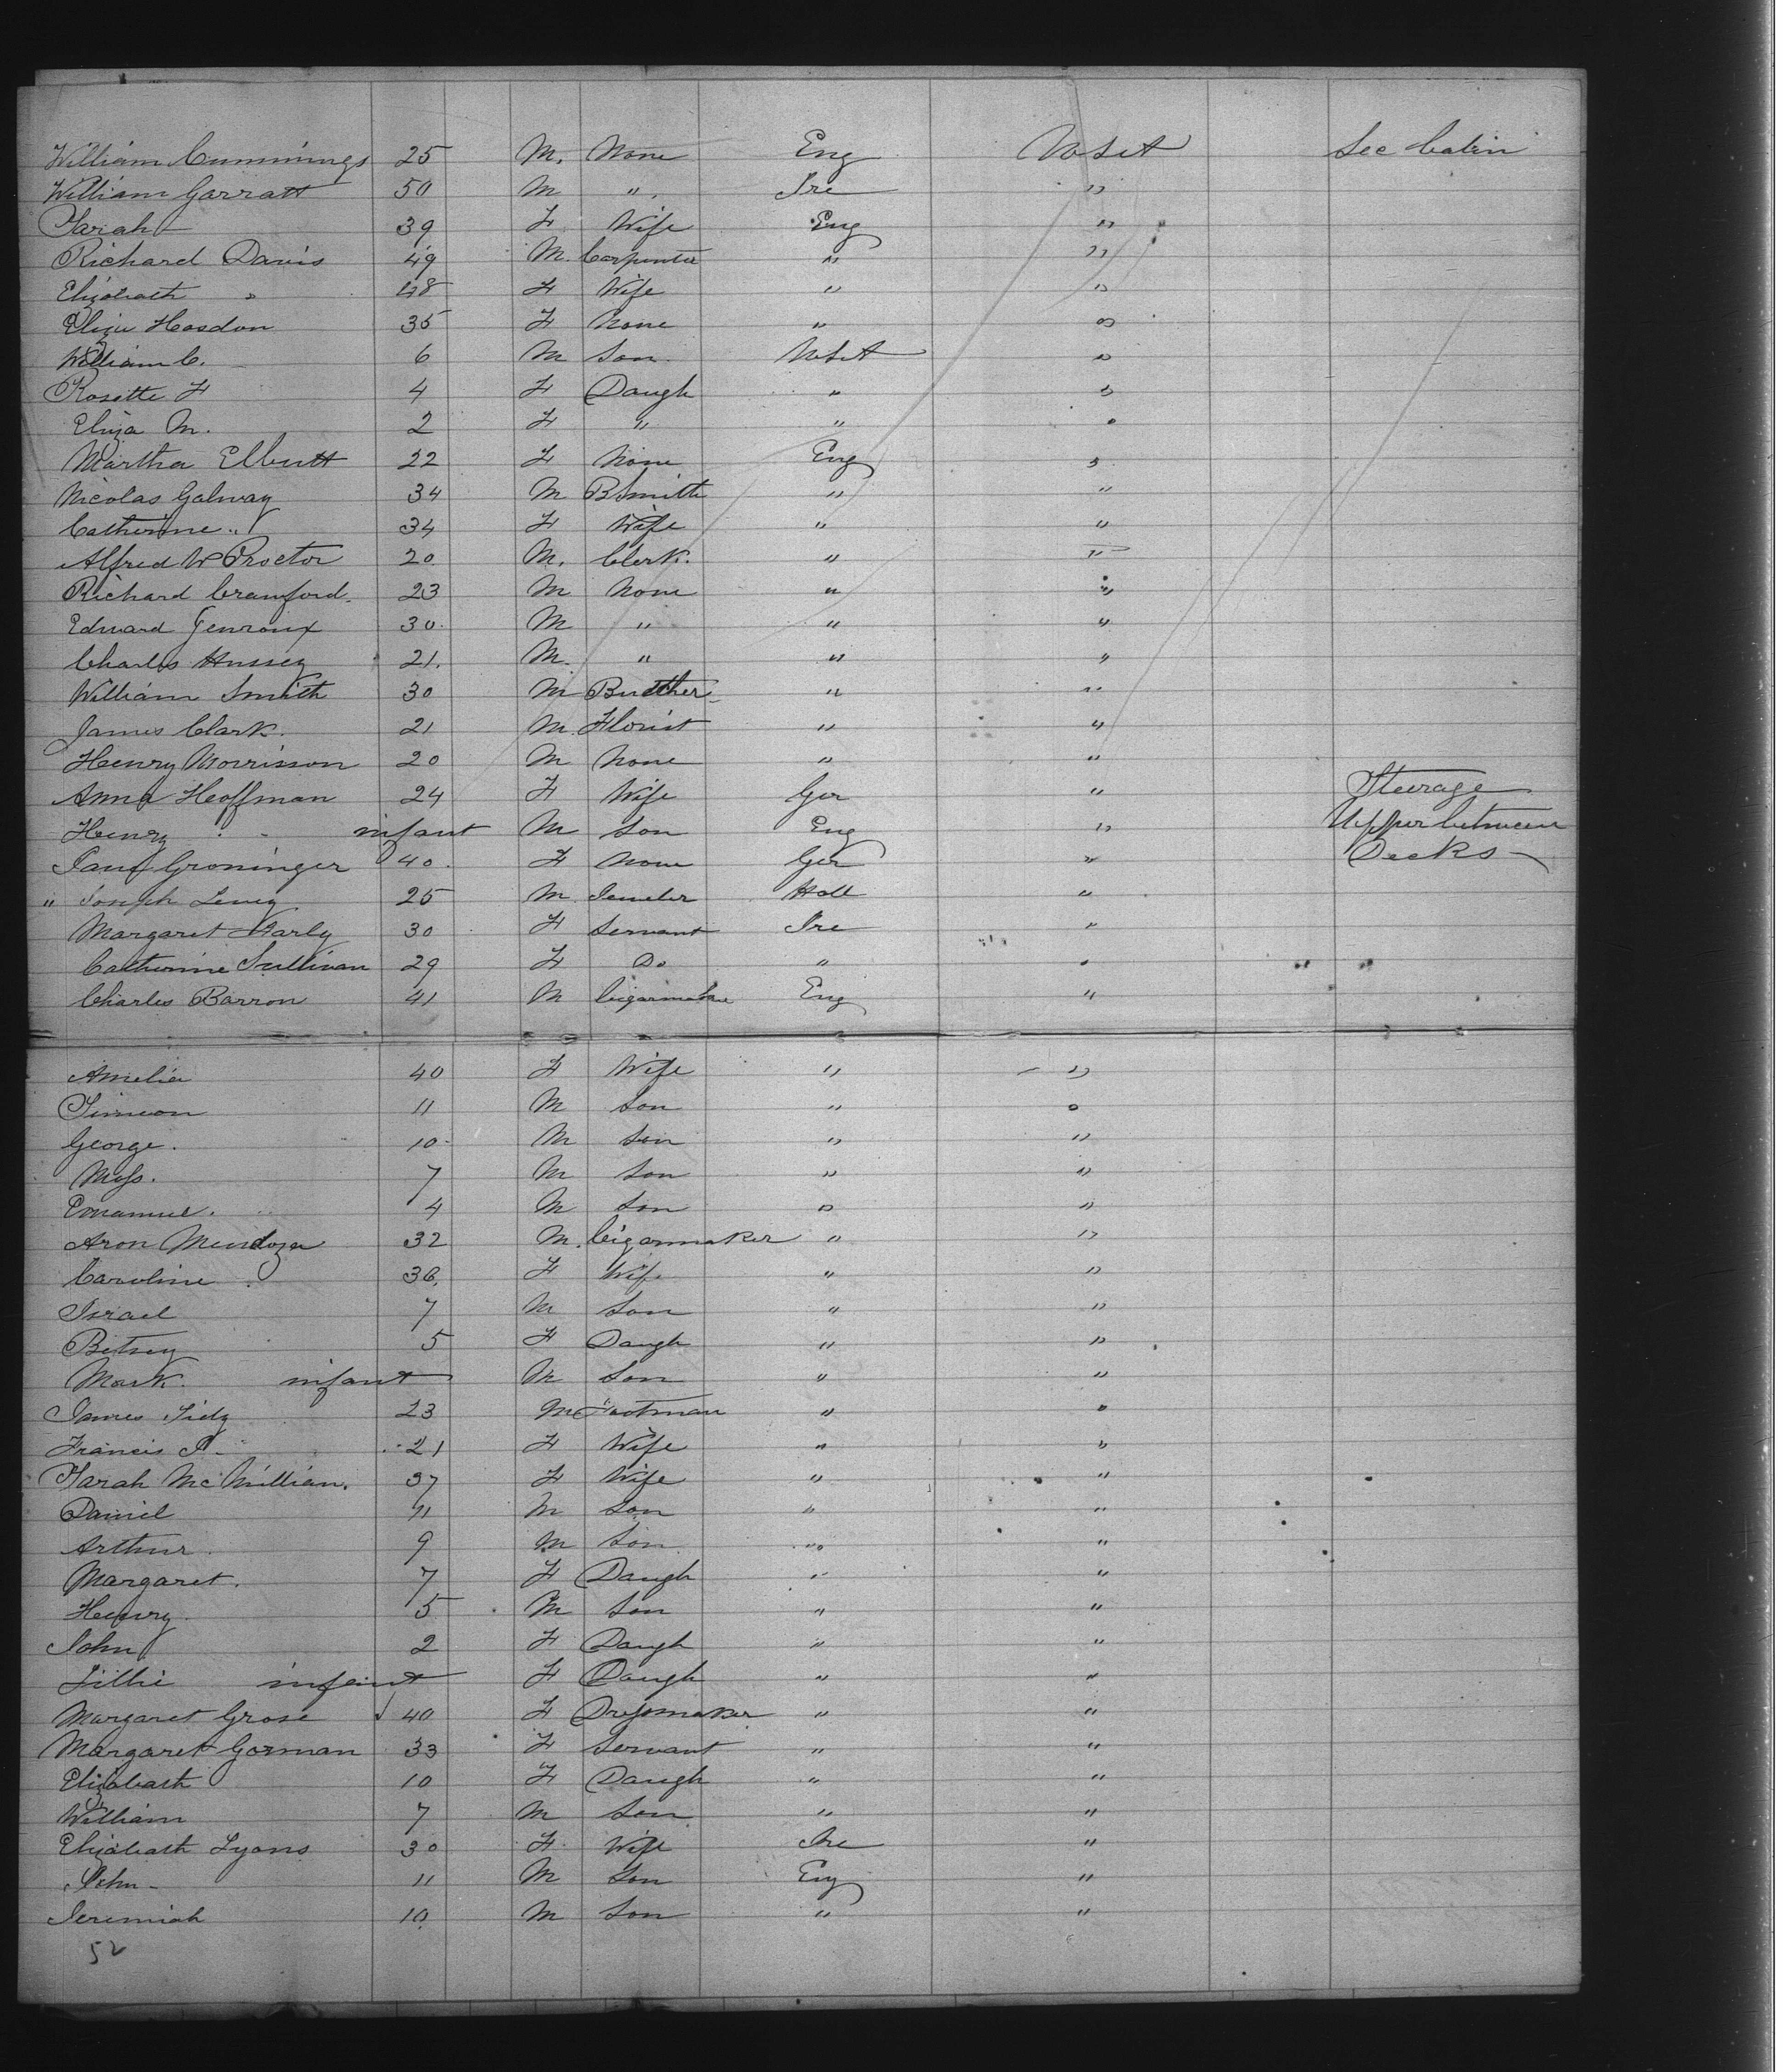 William Cummings 25 M. None Eng U.S.A Sec Cabin
William Garratt 50 M " Ire "
Sarah 39 F Wife Eng "
Richard Davis 49 M. Carpenter " "
Elizabeth " 48 F Wife " "
Eliza Hosdon 35 F None " "
William C. 6 M Son U.S.A "
Rosette F 4 F Daugh " "
Eliza M. 2 F " " "
Martha Elbutt 22 F None Eng "
Nicolas Galway 34 M BSmith " "
Catherine " 34 F Wife " "
Alfred W Proctor 20 M. Clerk. " "
Richard Crawford 23 M None " "
Edward 30 M " " "
Charles Hussey 21. M. " " "
William Smith 30 M Butcher " "
James Clark. 21 M. Florist " "
Henry Morrison 20 M None " "
Anna Hoffman 24 F Wife Ger " Steerage
Henry " infant M Son Eng " Upper between
Jane Groninger 40. F None Ger " Decks
" Joseph Levey 25 M. Jeweler Holl "
Margaret 30 F Servant Ire "
Catherine Sullivan 29 F Do " "
Charles Barron 41 M Cigarmaker Eng "
Amelia 40 F Wife " "
Simeon 11 M Son " "
George. 10 M Son " "
Moss. 7 M Son " "
Emanuel. 4 M Son " "
Aron Mendoza 32 M. Cigarmaker " "
Caroline 36. F Wife " "
Israel 7 M Son " "
Betsey 5 F Daugh " "
Mark. infant M Son " "
James Tidy 23 M Footman " "
Francis A. 21 F Wife " "
Sarah McMillian. 37 F Wife " "
Daniel 11 M Son " "
Arthur. 9 M Son " "
Margaret. 7 F Daugh " "
Henry. 5 M Son " "
John 2 F Daugh " "
Lillie infant F Daugh " "
Margaret Grose 40 F Dressmaker " "
Margaret Gorman 33 F Servant " "
Elizabeth 10 F Daugh " "
William 7 M Son " "
Elizabeth Lyons 30 F. Wife Ire "
John 11 M Son Eng "
Jeremiah 10. M Son " "
52